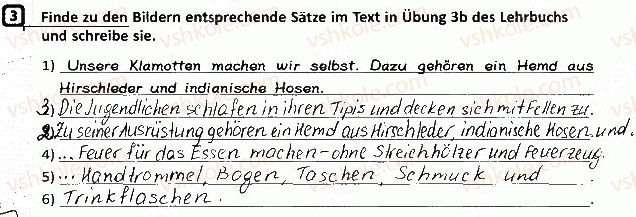 3 Finde zu den Bildern entsprechende Sätze im Text in Übung 3b des Lehrbuchs
und schreibe sie.
1) Unsere Klamotten machen wir selbst. Dazu gehören ein Hemd aus
Hirschleder und indianische Hosen.
3) Die Jugendlichen schlafen in ihren Tipis und decken sich mit Fellen zu.
2) Zu seiner Ausrüstung gehören ein Hemd aus Hirschleder, indianische Hosen und.
4) ... Feuer für das Essen machen - ohne Streichhölzer und Feuerzeug.
5) ... Handtrommel, Bogen, Taschen, Schmuck und
6) Trinkflaschen.